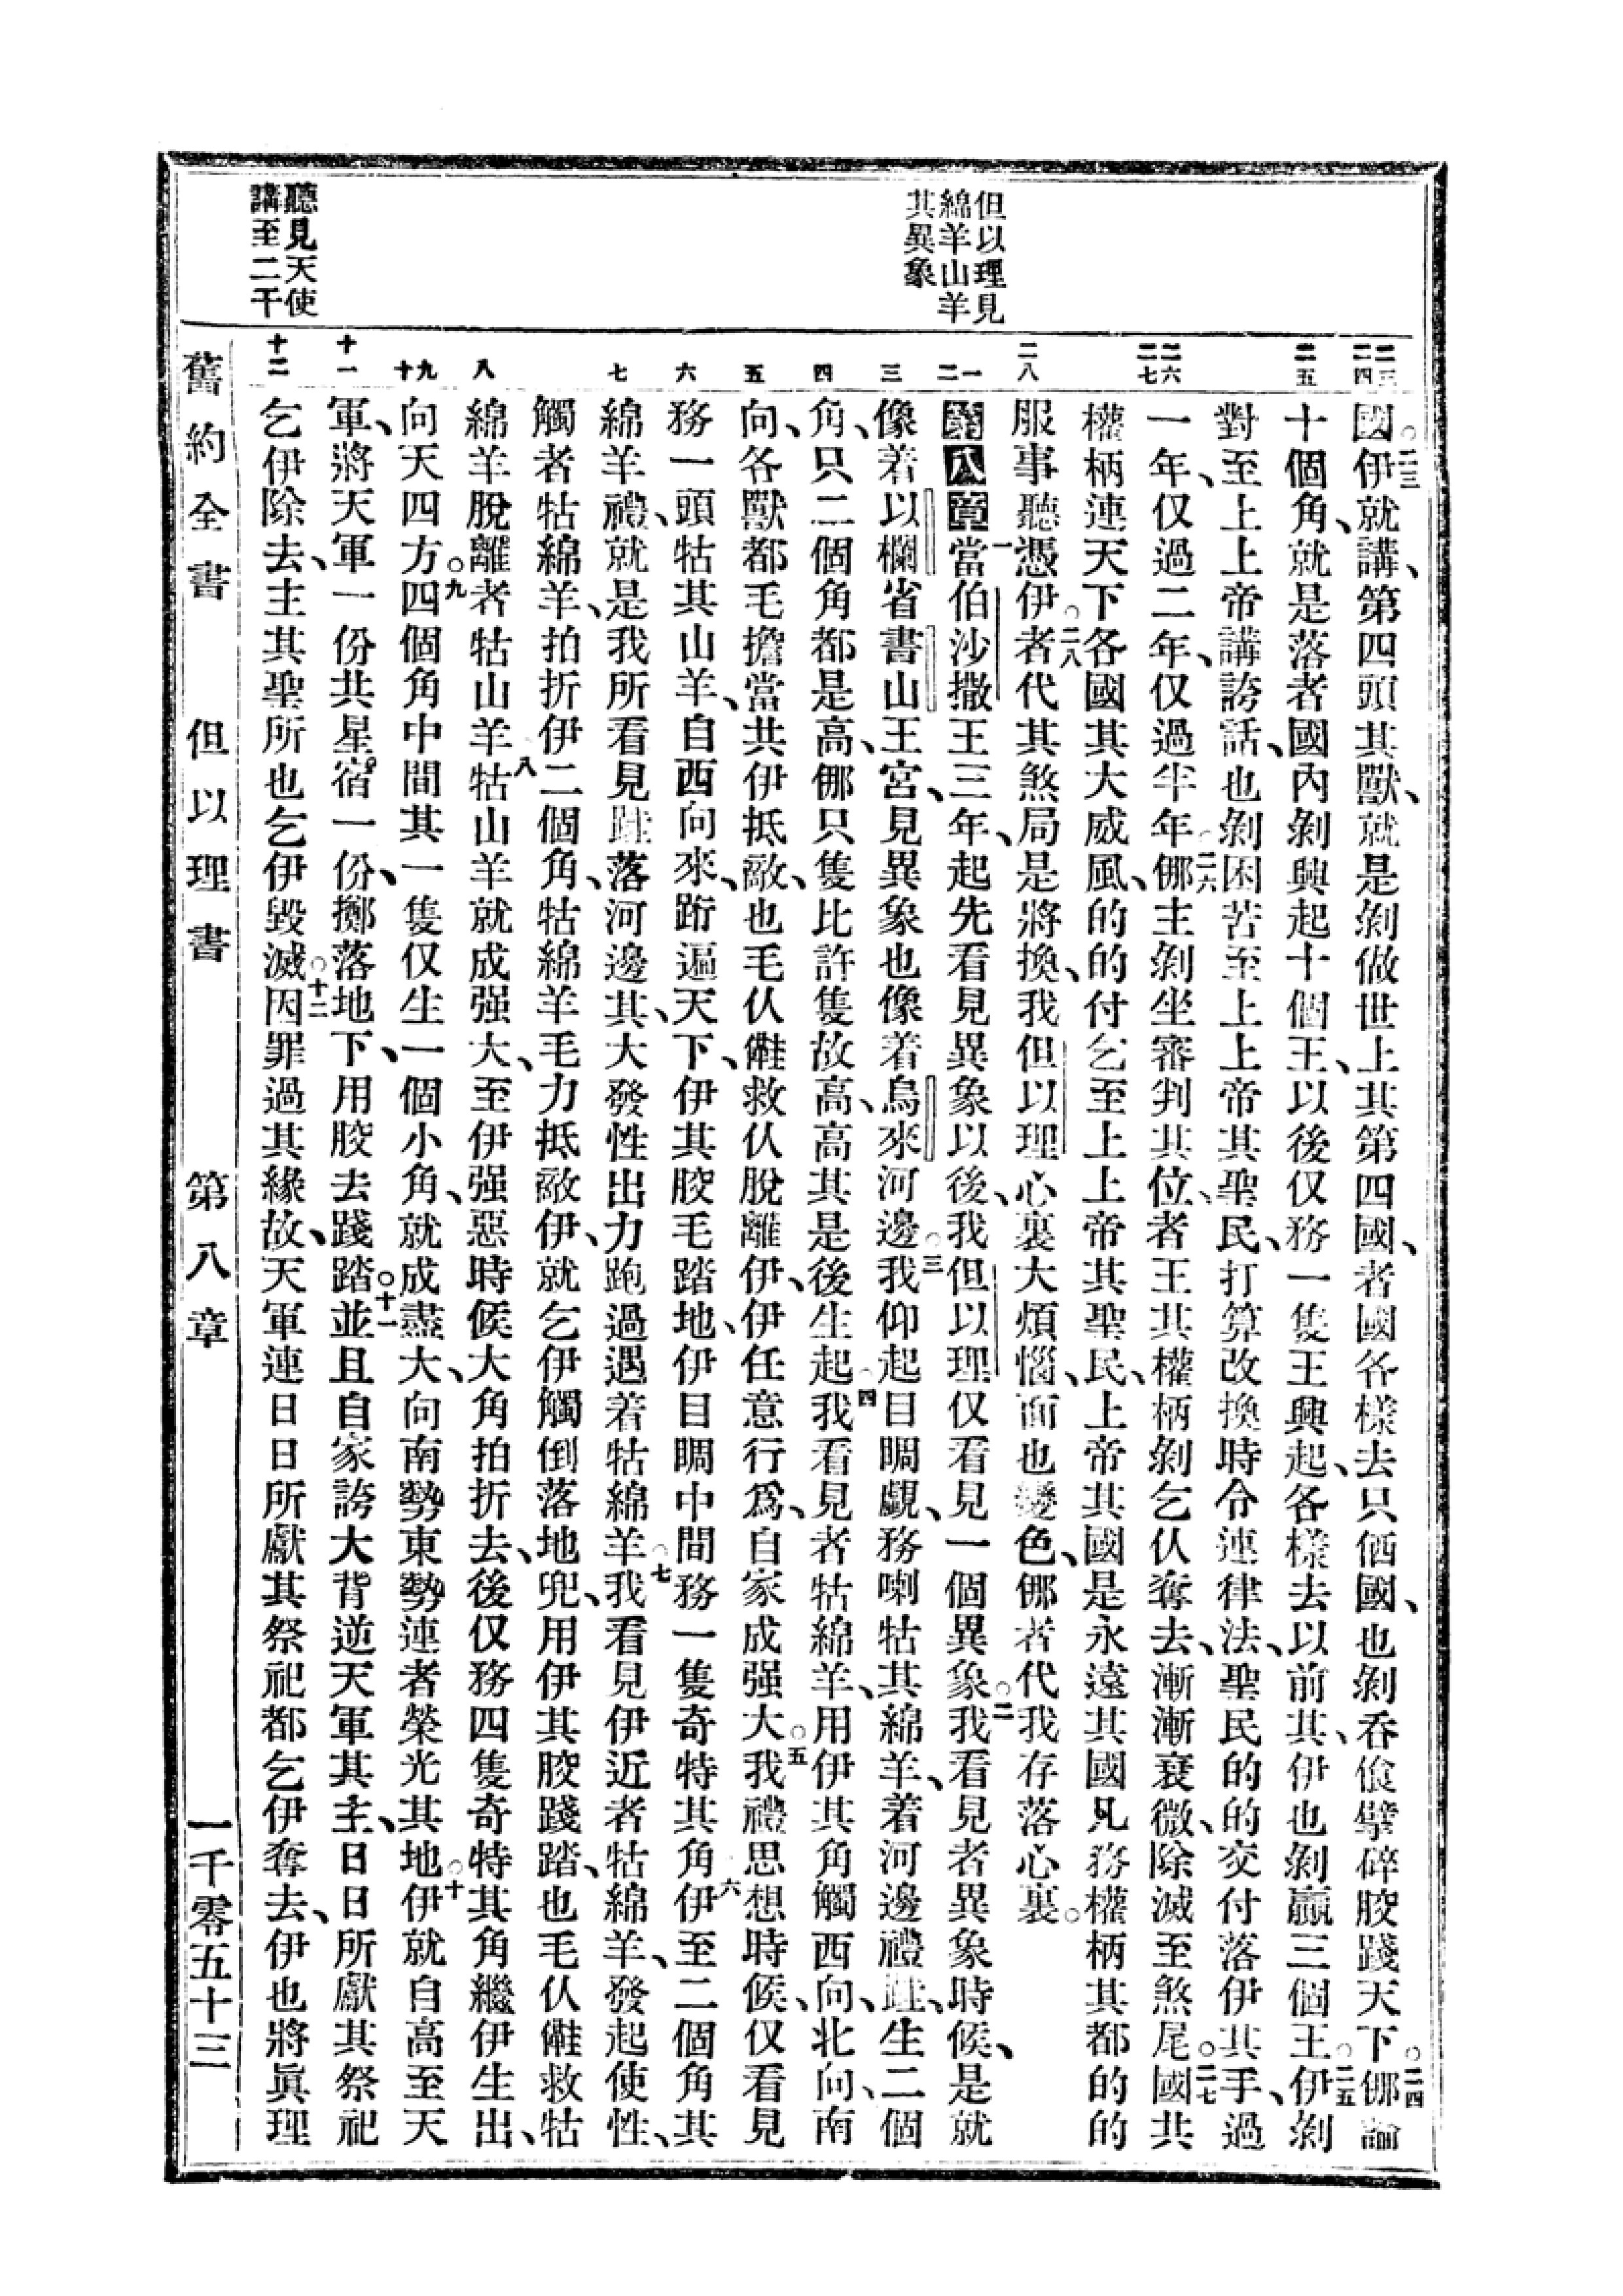 但以理見
綿羊山羊
其異象
聽見天使
講至二千
二三 二四
二五
二六 二七
二八
一 二
三
四
五
六
七
八
九 十
十一
十二
國。二三伊就講、第四頭其獸、就是剝做世上其第四國、者國各樣去只的國、也剝吞傖擘碎骹踐天下。二四㑚論
十個角、就是落者國內剝興起十個王、以後仅務一隻王興起、各樣去以前其、伊也剝贏三個王。二五伊剝
對至上上帝講誇話、也剝困苦至上上帝其聖民、打算改換時令連律法、聖民的的交付落伊其手、過
一年、仅過二年、仅過半年。二六㑚主剝坐審判其位、者王其權柄剝乞仈奪去、漸漸衰微、除滅至煞尾。二七國共
權柄連天下各國其大威風、的的付乞至上上帝其聖民、上帝其國是永遠其國凡務權柄其都的的
服事聽憑伊。二八者代其煞局是將換、我但以理心裏大煩惱、面也變色、㑚者代我存落心裏。
第八章 一當伯沙撒王三年、起先看見異象以後、我但以理仅看見一個異象。二我看見者異象時候、是就
像着以欄省書山王宮、見異象也像着烏來河邊。三我仰起目睭覷、務喇牯其綿羊、着河邊禮𨅏、生二個
角、只二個角都是高、㑚只隻比許隻故高、高其是後生起。四我看見者牯綿羊、用伊其角觸西向、北向、南
向、各獸都毛擔當共伊抵敵、也毛仈㒕救仈脫離伊、伊任意行爲、自家成强大。五我禮思想時候、仅看見
務一頭牯其山羊、自西向來、跴遍天下、伊其骹毛踏地、伊目睭中間務一隻奇特其角。六伊至二個角其
綿羊禮、就是我所看見𨅏落河邊其、大發性出力跑過遇着牯綿羊。七我看見伊近者牯綿羊、發起使性、
觸者牯綿羊、拍折伊二個角、牯綿羊毛力抵敵伊、就乞伊觸倒落地兜、用伊其骹踐踏、也毛仈㒕救牯
綿羊脫離者牯山羊。八牯山羊就成强大、至伊强惡時候大角拍折去、後仅務四隻奇特其角繼伊生出、
向天四方。九四個角中間其一隻仅生一個小角、就成盡大、向南勢東勢連者榮光其地。十伊就自高至天
軍、將天軍一份共星宿一份、擲落地下、用骹去踐踏。十一並且自家誇大背逆天軍其主、日日所獻其祭祀
乞伊除去、主其聖所也乞伊毀滅。十二因罪過其緣故、天軍連日日所獻其祭祀都乞伊奪去、伊也將眞理
舊約全書 但以理書 第八章 一千零五十三